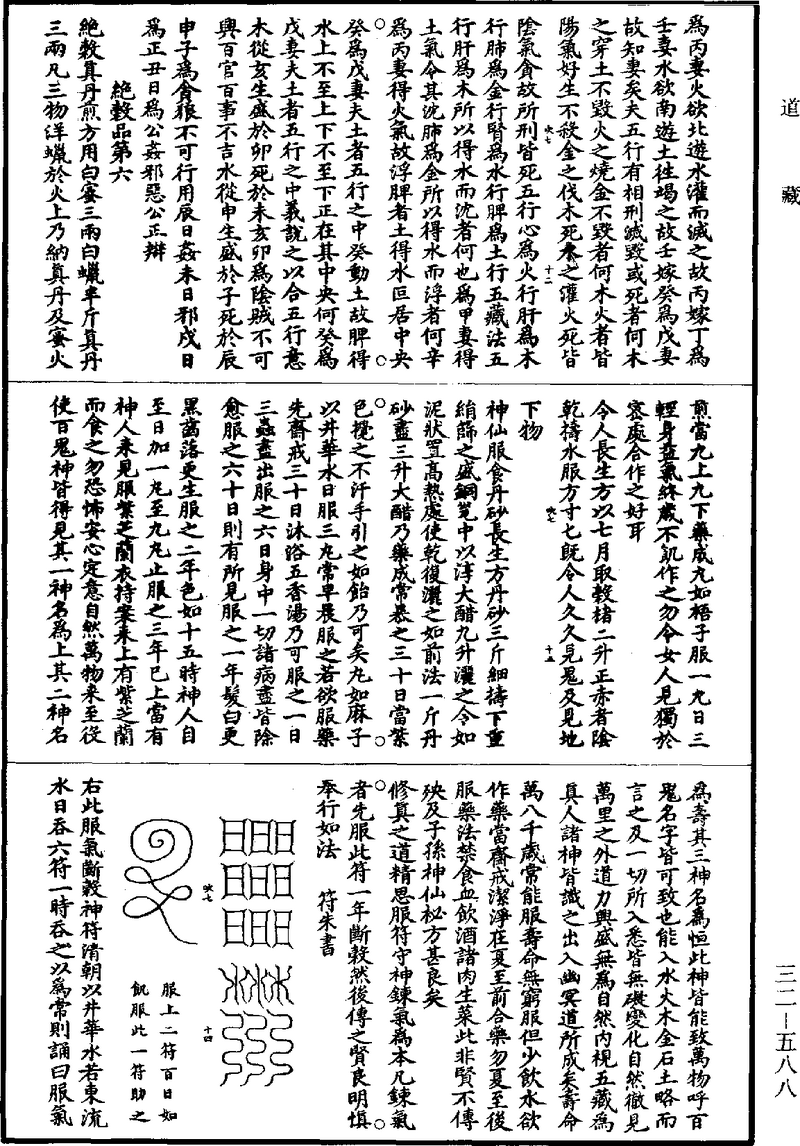 道藏
為丙妻火欲北遊水灌而滅之故丙嫁丁為
壬妻水欲南遊土往竭之故壬嫁癸為戊妻
故知妻矣夫五行有相刑滅毀或死者何木
之穿土不毀火之燒金不毀者何木火者皆
陽氣好生不殺金之伐木死水之灌火死皆
陰氣貪故所刑皆死五行心為火行肝為木
行肺為金行腎為水行脾為土行五藏法五
行肝為木所以得水而沈者何也為甲妻得
土氣令其沈肺為金所以得水而浮者何辛
為丙妻得火氣故浮脾者土得水叵居中央
癸為戊妻夫土者五行之中癸動土故脾得
水上不至上下不至下正在其中央何癸為
戊妻夫土者五行之中義說之以合五行意
木從亥生盛於卯死於未亥卯為陰賊不可
興百官百事不吉水從申生盛於子死於辰
申子為貪狼不可行用辰日姦未日邪戌日
為正丑日為公姦邪惡公正辯
絶穀品第六
絶穀真丹煎方用白蜜三兩白蠟半斤真丹
三兩凡三物洋蠟於火上乃納真丹及蜜火
煎當九上九下藥成丸如梧子服一丸日三
輕身益氣終歲不飢作之勿令女人見獨於
密處合作之好耳
令人長生方以七月取穀楮二升正赤者陰
乾擣水服方寸七既令人久久見鬼及見地
下物
神仙服食丹砂長生方丹砂三斤細擣下重
絹篩之盛銅筧中以淳大醋九升灑之令如
泥狀置高熱處使乾復灑之如前法一斤丹
砂盡三升大醋乃藥成常暴之三十日當紫
色攪之不汙手引之如飴乃可矣丸如麻子
以井華水日服三丸常早晨服之若欲服藥
先齋戒三十日沐浴五香湯乃可服之一日
三蟲盡出服之六日身中一切諸病盡皆除
愈服之六十日則有所見服之一年髮白更
黑齒落更生服之二年色如十五時神人自
至日加一丸至九丸止服之三年已上當有
神人來見服紫芝蘭衣持案來上有紫芝蘭
而食之勿恐怖安心定意自然萬物來至役
使百鬼神皆得見其一神名為上其二神名
為壽其三神名為恒此神皆能致萬物呼百
鬼名字皆可致也能入水火木金石土略而
言之及一切所入悉皆無礙變化自然徹見
萬里之外道力興盛無為自然內視五藏為
真人諸神皆識之出入幽冥道所成矣壽命
萬八千歲常能服壽命無窮服但少飲水欲
作藥當齋戒潔淨在夏至前合藥勿夏至後
服藥法禁食血飲酒諸肉生菜此非賢不傳
殃及子孫神仙祕方甚良矣
修真之道精思服符守神鍊氣為本凡鍊氣
者先服此符一年斷穀然後傳之賢良明慎
奉行如法　符朱書
服上二符百日如
飢服此一符助之
右此服氣斷穀神符清朝以井華水若東流
水日吞六符一時吞之以為常則誦曰服氣
三二—五八八